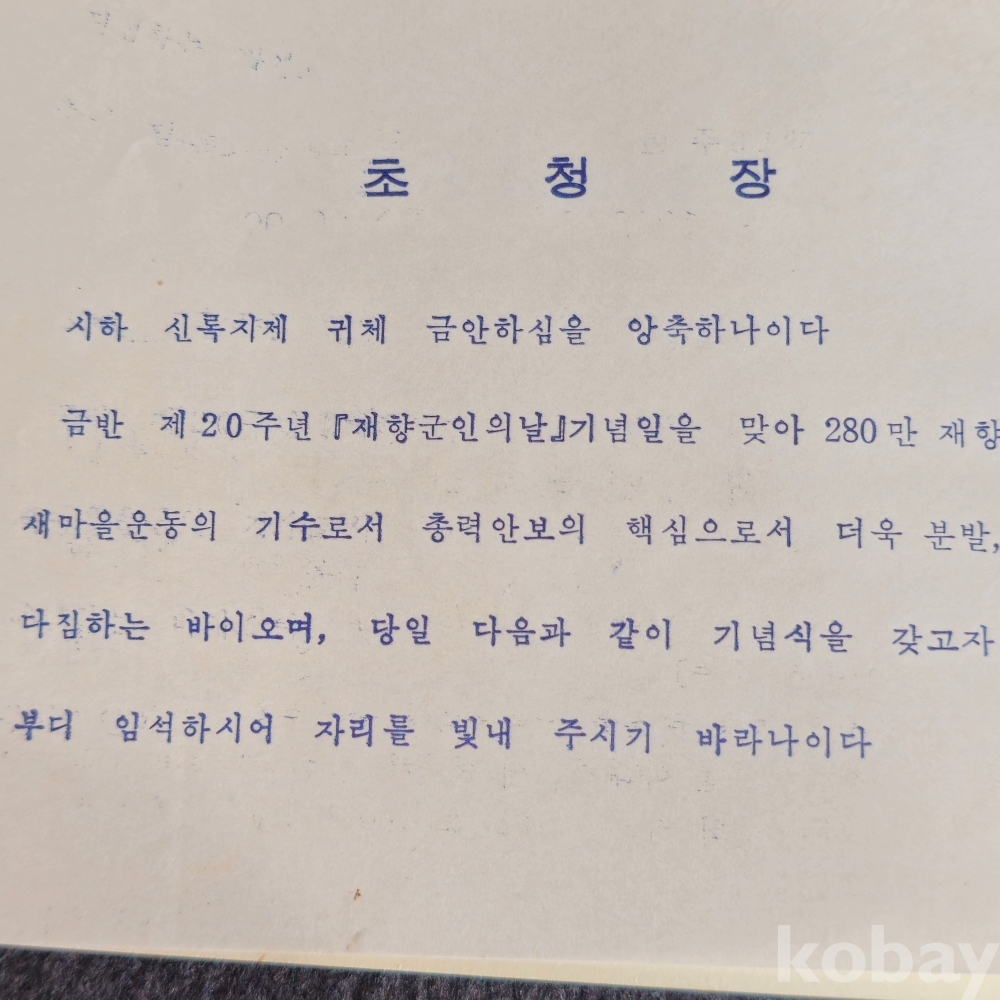 초 청 장
시하 신록지제 귀체 금안하심을 앙축하나이다
금반 제20주년 『재향군인의날』기념일을 맞아 280만 재향
새마을운동의 기수로서 총력안보의 핵심으로서 더욱 분발,
다짐하는 바이오며, 당일 다음과 같이 기념식을 갖고자
부디 임석하시어 자리를 빛내 주시기 바라나이다
kobay